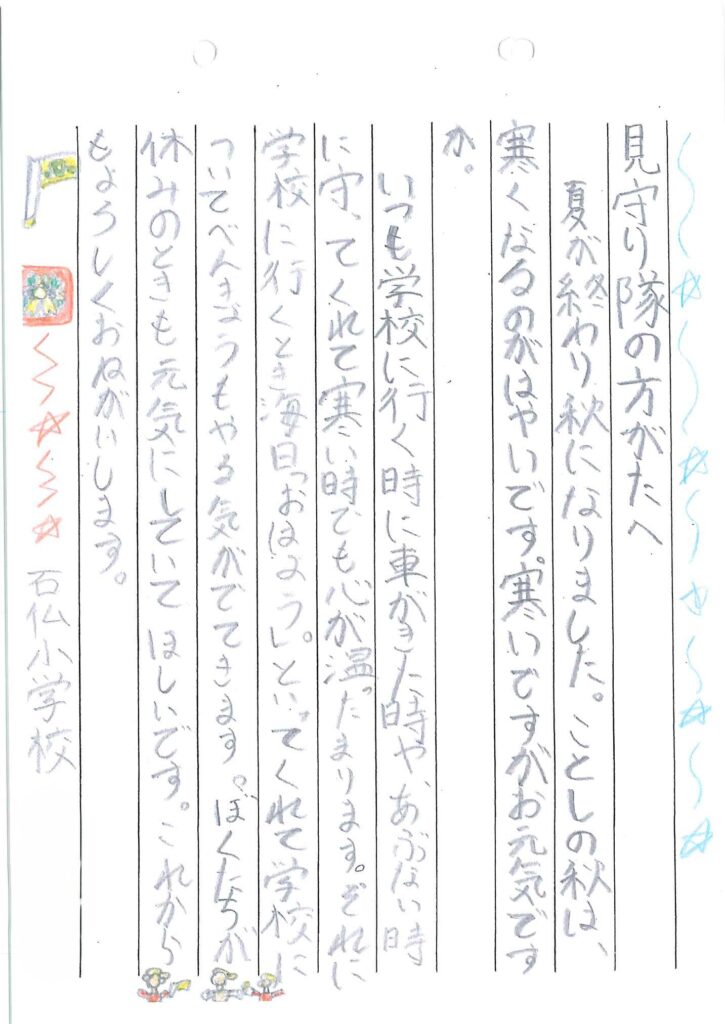 見守り隊の方がたへ
夏が終わり秋になりました。ことしの秋は、
寒くなるのがはやいです。寒いですがお元気です
か。
いつも学校に行く時に車がきた時や、あぶない時
に守ってくれて寒い時でも心が温ったまります。ぞれに
学校に行くとき海日「おはよう」。といってくれて学校に
ついてべんきょうもやる気がでてきます。ぼくたちが
休みのときも元気にしていてほしいです。これから
もよろしくおねがいします。
石仏小学校